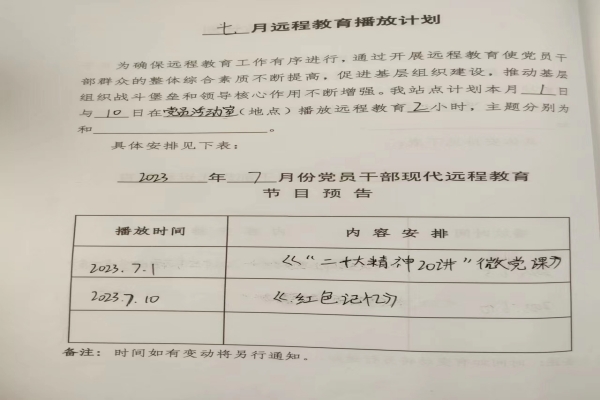 七 月远程教育播放计划
为确保远程教育工作有序进行，通过开展远程教育使党员干
部群众的整体综合素质不断提高，促进基层组织建设，推动基层
组织战斗堡垒和领导核心作用不断增强。我站点计划本月 1 日
与 10 日在党员活动室（地点）播放远程教育 2 小时，主题分别为
和 。
具体安排见下表：
2023 年 7 月份党员干部现代远程教育
节目预告
播放时间 内容安排
2023.7.1 《“二十大精神20讲”微党课》
2023.7.10 《红色记忆》
备注：时间如有变动将另行通知。